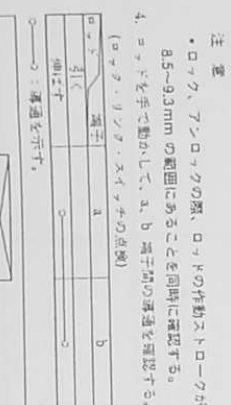 注 意
•ロック、アンロックの際、ロッドの作動ストロークが
8.5〜9.3mm の範囲にあることを同時に確認する。
4. ロッドを手で動かして、a、b 端子間の導通を確認する。
(ロック・リンク・スイッチの点検)
ロッド 端子 a b
引く
伸ばす ○ ○
○—○:導通を示す。